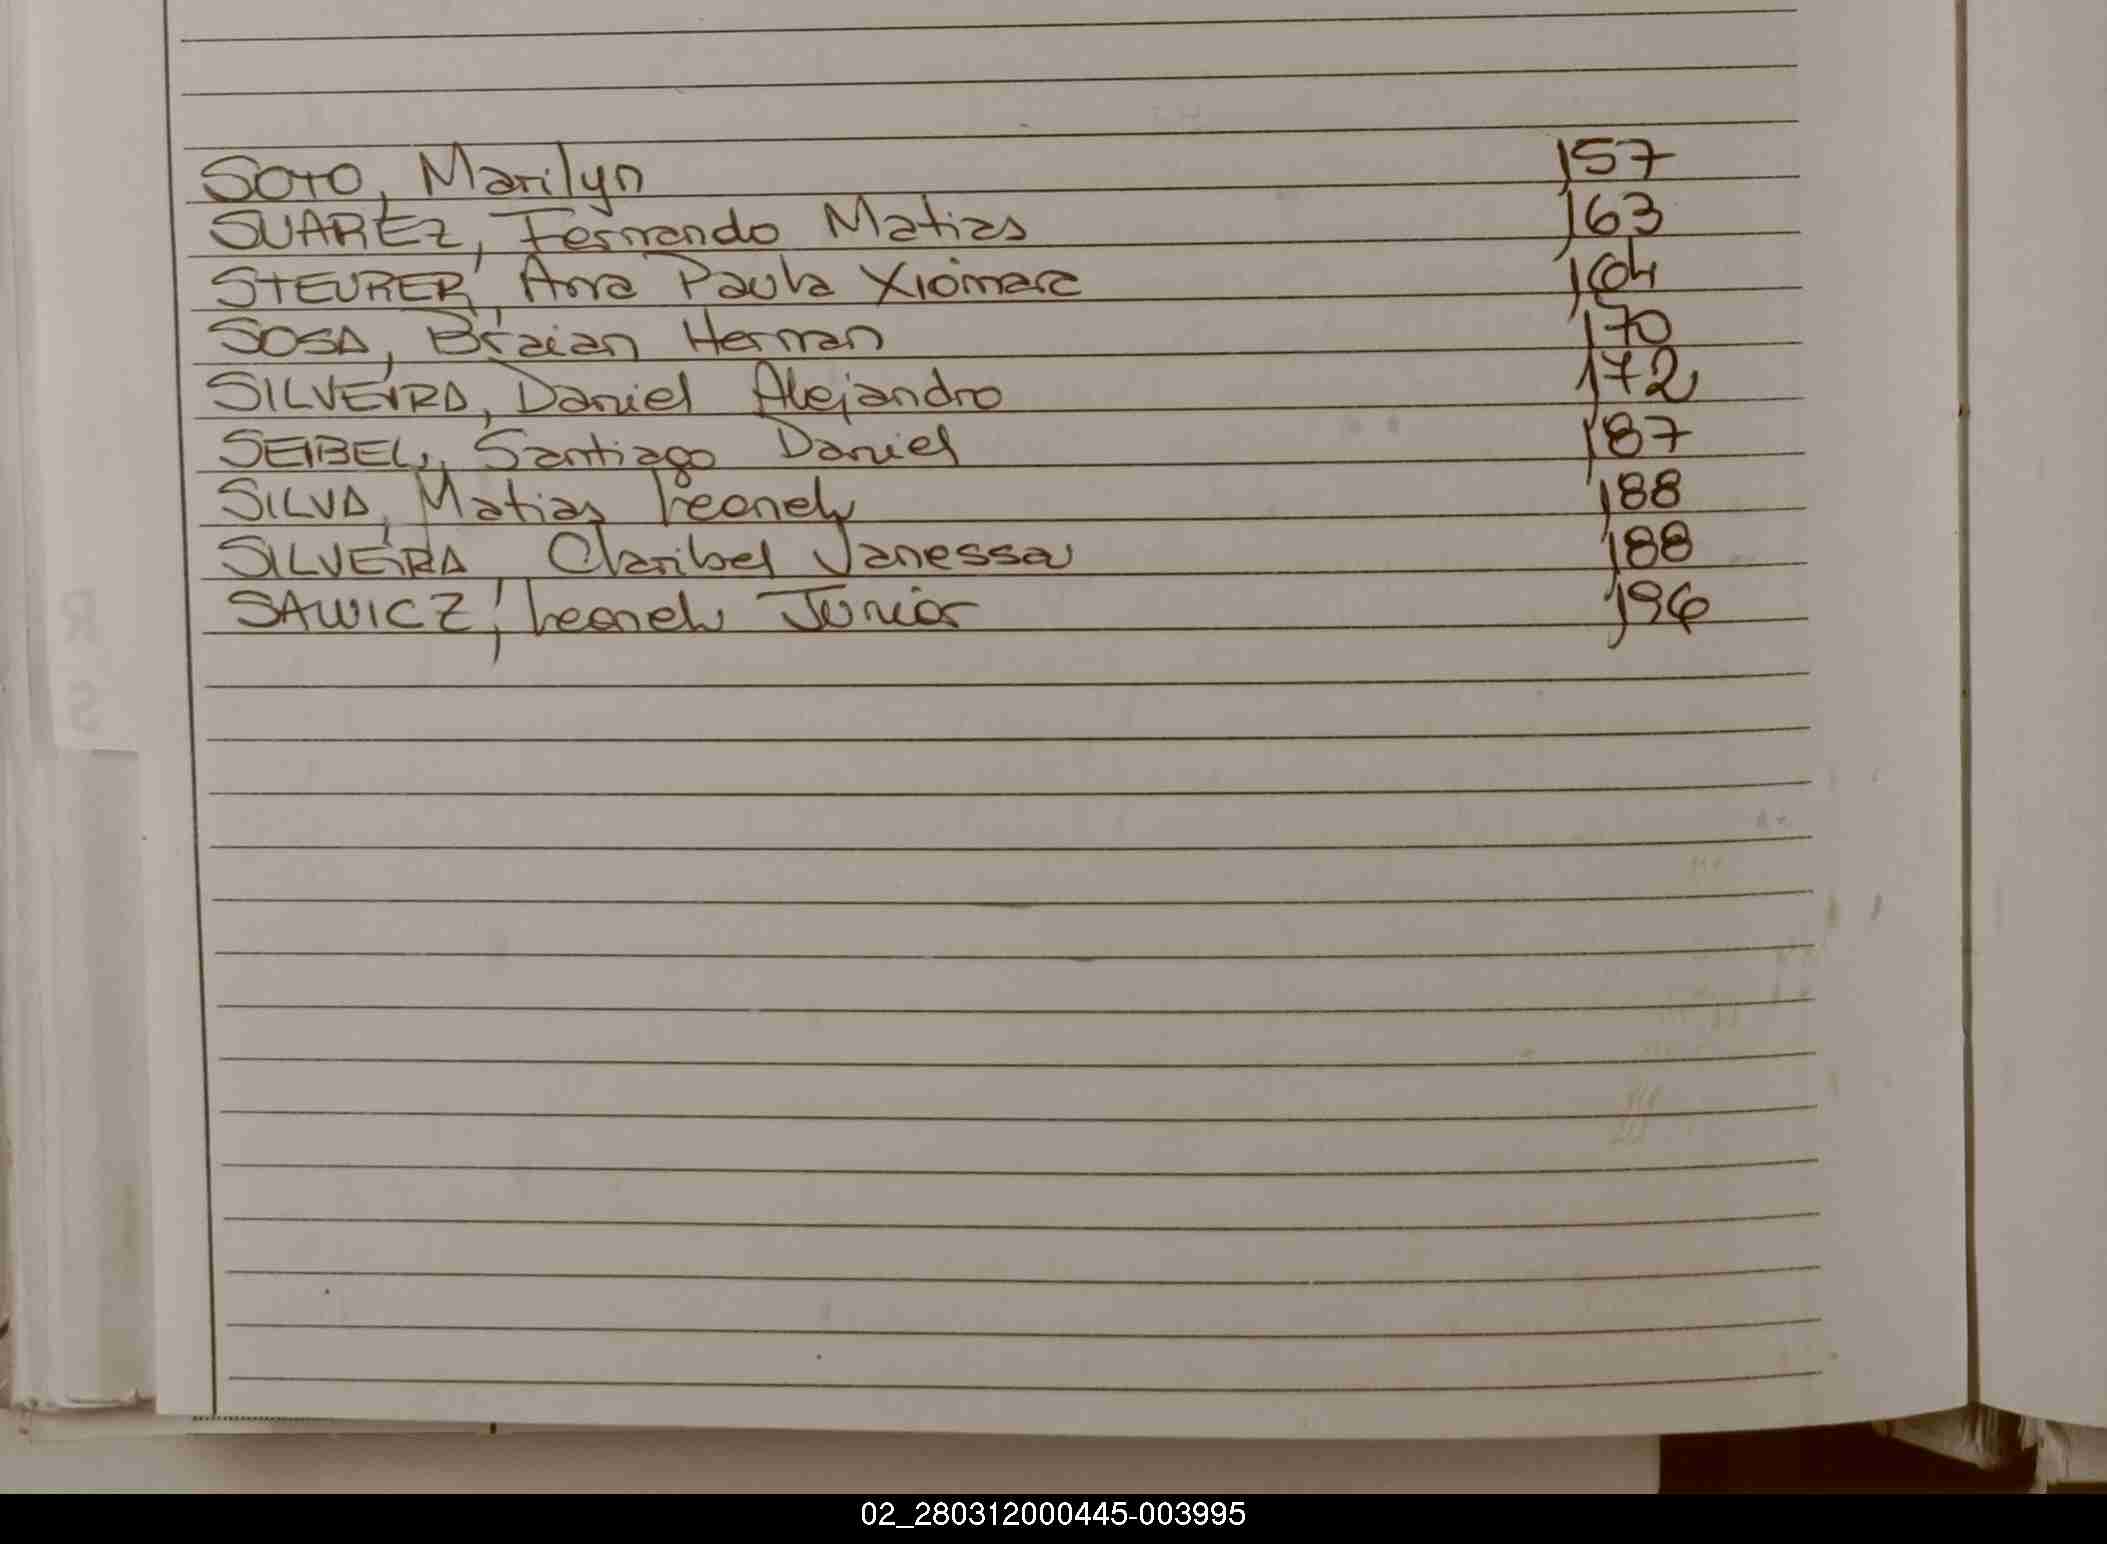 SOTO, Marilyn 157
SUAREZ, Fernando Matias 163
STEURER, Ana Paula Xiomara 164
SOSA, Braian Hernan 170
SILVEIRA, Daniel Alejandro 172
SEIBEL, Santiago Daniel 187
SILVA, Matias Leonel 188
SILVEIRA Claribel Vanessa 188
SAWICZ, Leonel Junior 196
R
S
02_280312000445-003995